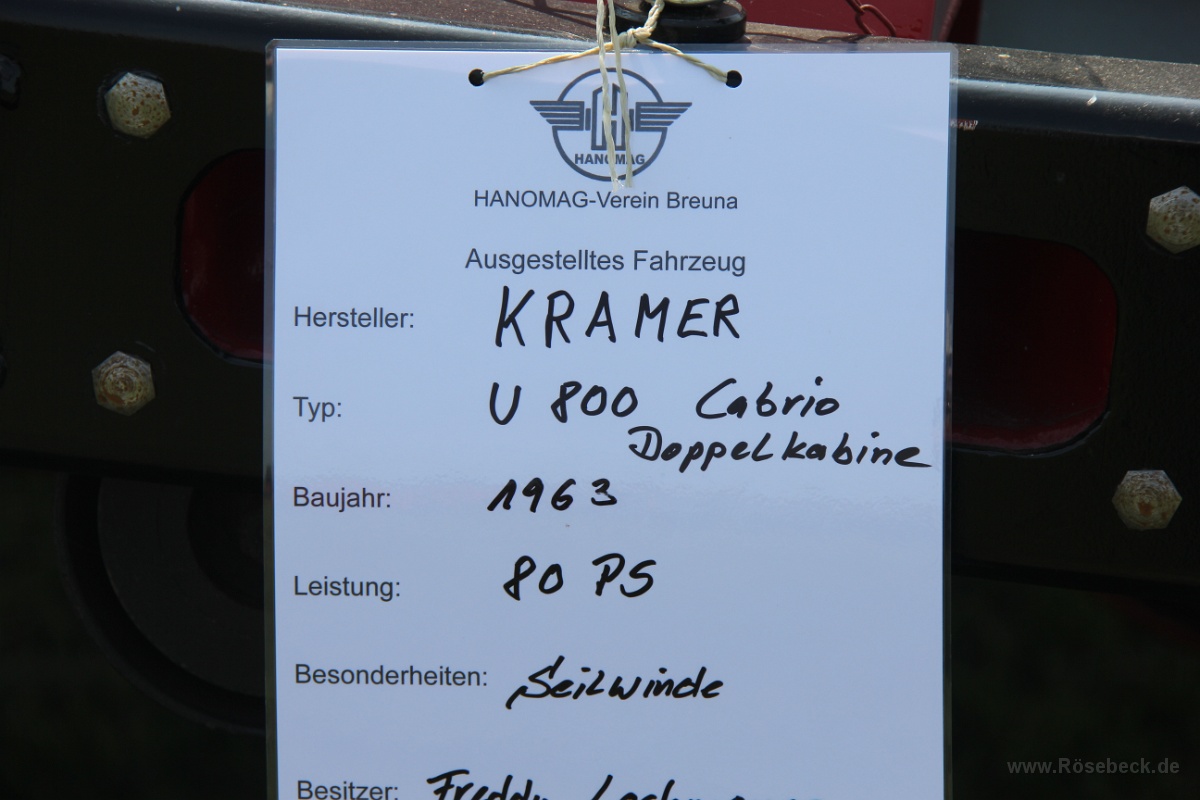 HANOMAG
HANOMAG-Verein Breuna
Ausgestelltes Fahrzeug
Hersteller: KRAMER
Typ: U 800 Cabrio
Doppelkabine
Baujahr: 1963
Leistung: 80 PS
Besonderheiten: Seilwinde
Besitzer: Freddy
www.Rösebeck.de